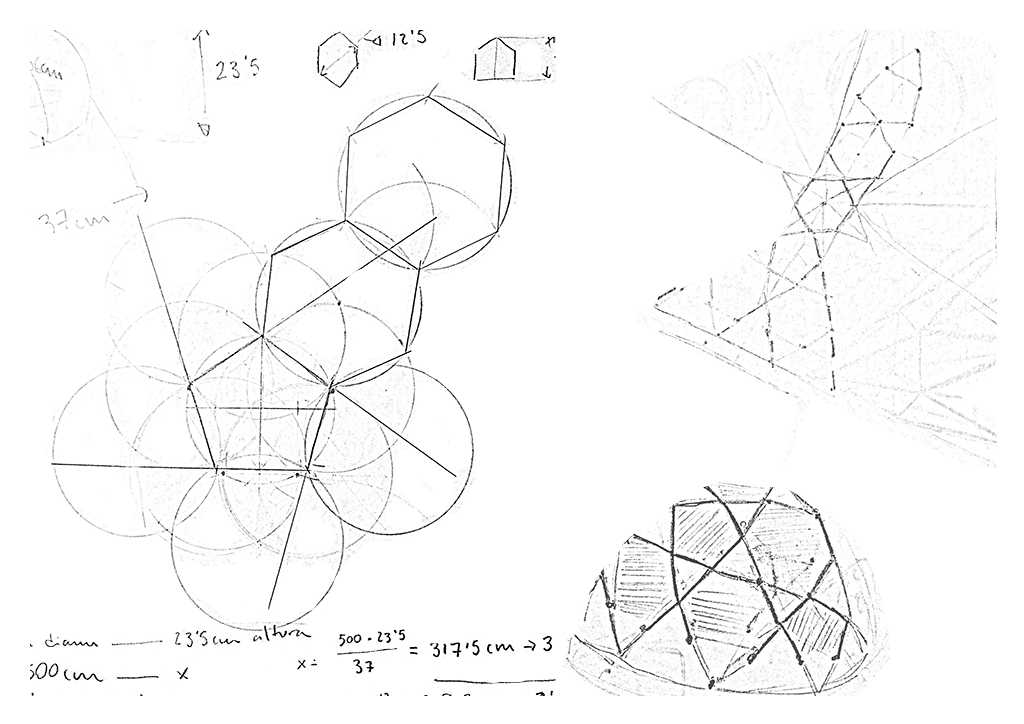 23'5
12'5
37cm
diam — 23'5cm altura
500cm — x
x = 500 · 23'5 / 37 = 317'5 cm → 3